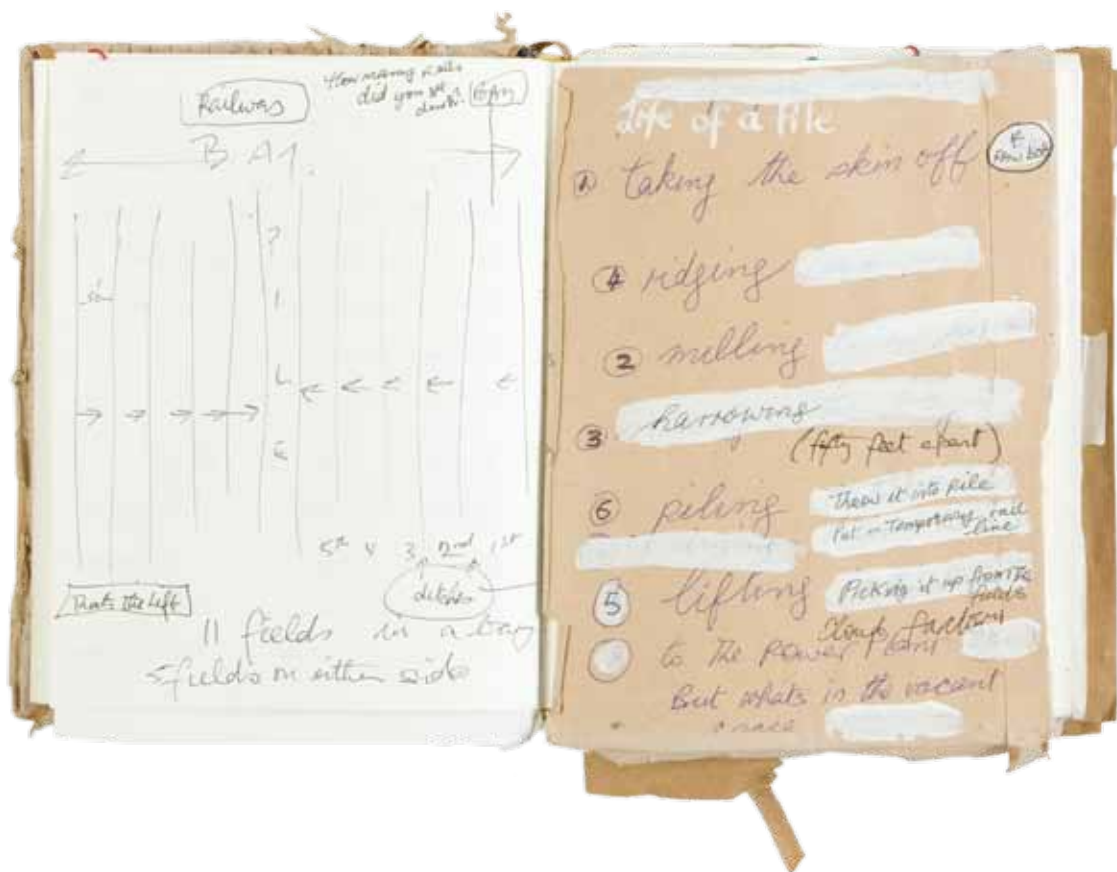 Railways
How many rails
did you
BAY
P
I
L
E
5th 4 3 2nd 1st
ditches
That's the Left
11 fields in a bay
5 fields on either side
Life of a Pile
1 taking the skin off
4 ridging
2 milling
3 harrowing
(fifty feet apart)
6 piling
Throw it into pile
Put in Temporary rail
line
5 lifting
Picking it up from the
fields
to the power plant
But whats in the vacant
space